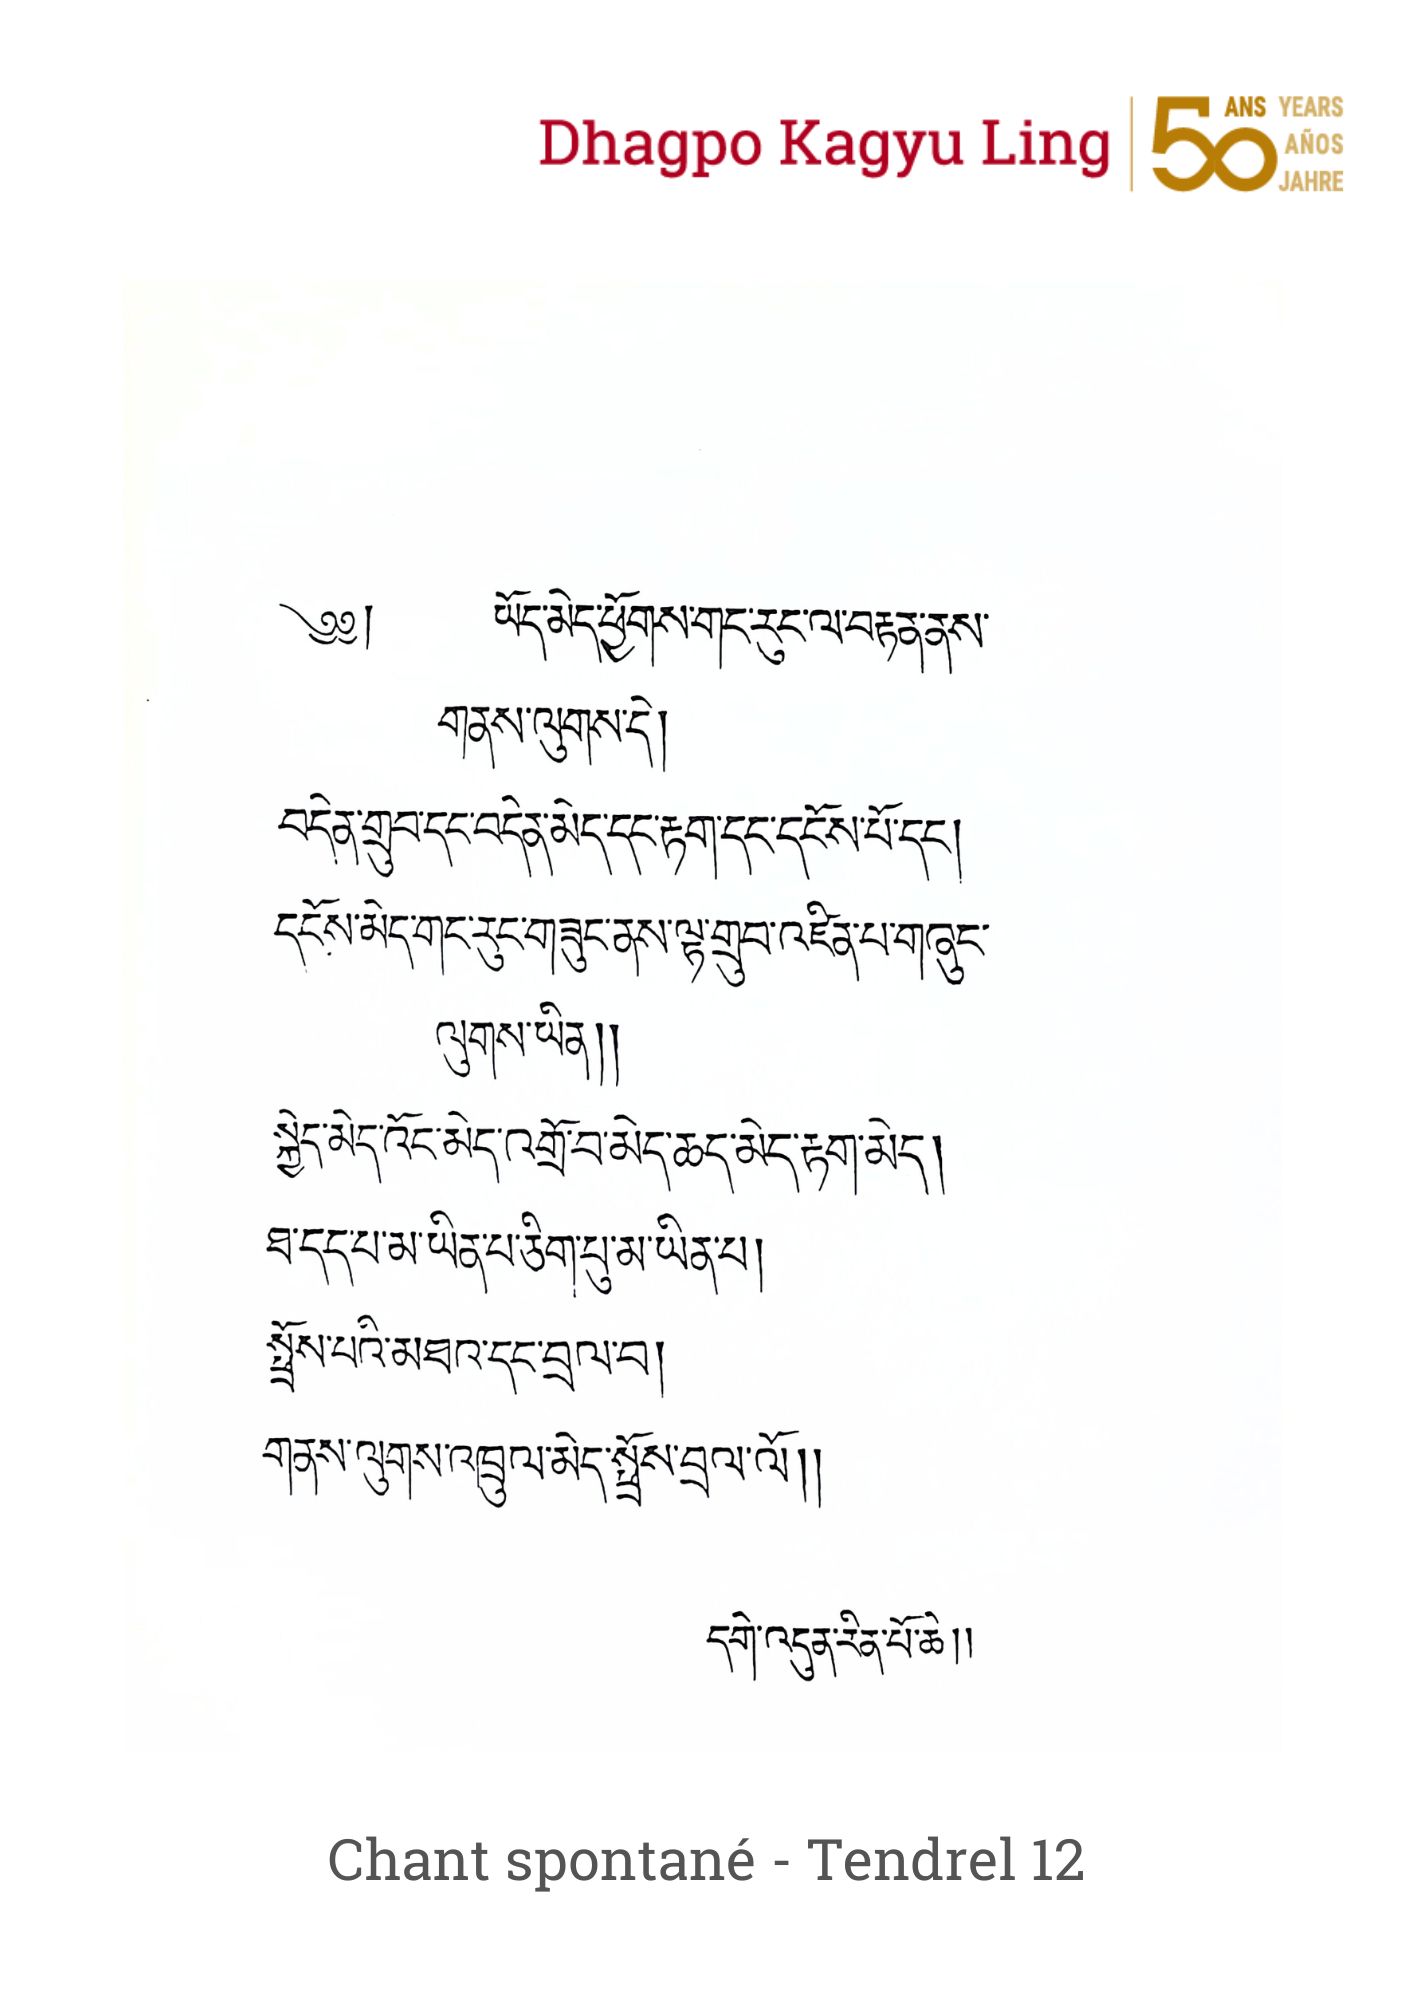 Dhagpo Kagyu Ling
50 ANS YEARS
AÑOS
JAHRE
༄༅། ཡོད་མེད་ཕྱོགས་གང་རུང་ལ་བརྟན་ནས་
གནས་ལུགས་དེ།
བདེན་གྲུབ་དང་བདེན་མེད་དང་རྟག་དང་དངོས་པོ་དང།
དངོས་མེད་གང་རུང་གཟུང་ནས་ལྟ་གྲུབ་འཛིན་པ་གཞུང་
ལུགས་ཡིན།།
སྐྱེད་མེད་འོང་མེད་འགྲོ་བ་མེད་ཆད་མེད་རྟག་མེད།
ཐ་དད་པ་མ་ཡིན་པ་ཅིག་པུ་མ་ཡིན་པ།
སྤྲོས་པའི་མཐའ་དང་བྲལ་བ།
གནས་ལུགས་འཁྲུལ་མེད་སྤྲོས་བྲལ་ལོ།།
དགེ་འདུན་རིན་པོ་ཆེ།།
Chant spontané - Tendrel 12